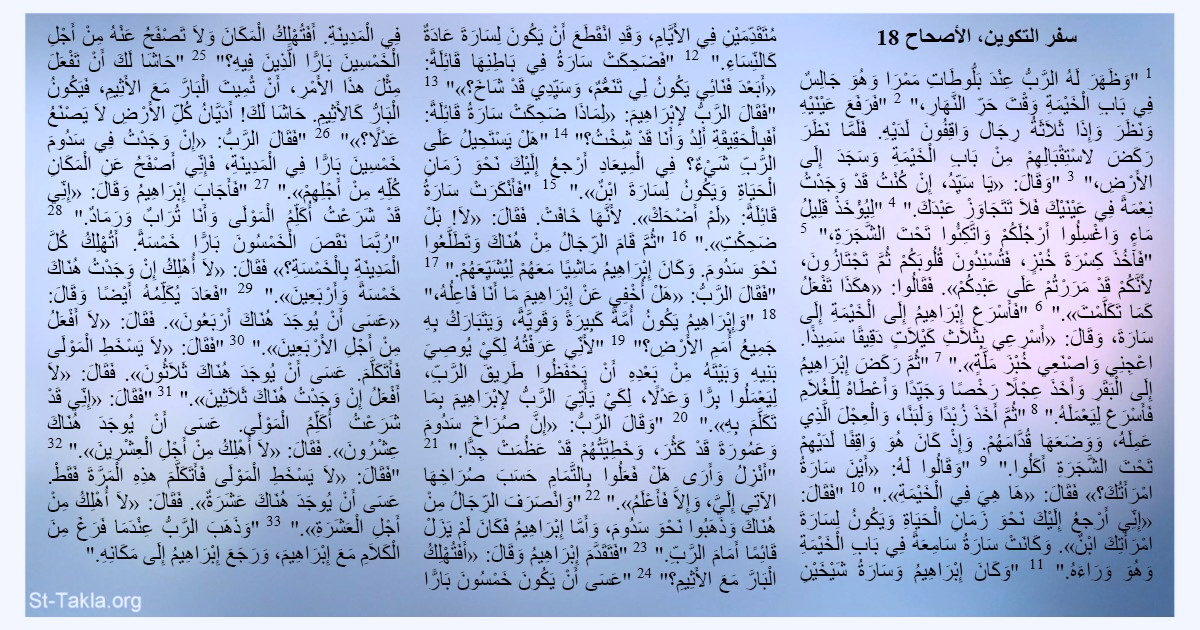 سفر التكوين، الأصحاح 18
1 "وَظَهَرَ لَهُ الرَّبُّ عِنْدَ بَلُّوطَاتِ مَمْرَا وَهُوَ جَالِسٌ
فِي بَابِ الْخَيْمَةِ وَقْتَ حَرِّ النَّهَارِ،" 2 "فَرَفَعَ عَيْنَيْهِ
وَنَظَرَ وَإِذَا ثَلاَثَةُ رِجَال وَاقِفُونَ لَدَيْهِ. فَلَمَّا نَظَرَ
رَكَضَ لاسْتِقْبَالِهِمْ مِنْ بَابِ الْخَيْمَةِ وَسَجَدَ إِلَى
الأَرْضِ،" 3 "وَقَالَ: «يَا سَيِّدُ، إِنْ كُنْتُ قَدْ وَجَدْتُ
نِعْمَةً فِي عَيْنَيْكَ فَلاَ تَتَجَاوَزْ عَبْدَكَ." 4 "لِيُؤْخَذْ قَلِيلُ
مَاءٍ وَاغْسِلُوا أَرْجُلَكُمْ وَاتَّكِئُوا تَحْتَ الشَّجَرَةِ،" 5
"فَآخُذَ كِسْرَةَ خُبْزٍ، فَتُسْنِدُونَ قُلُوبَكُمْ ثُمَّ تَجْتَازُونَ،
لأَنَّكُمْ قَدْ مَرَرْتُمْ عَلَى عَبْدِكُمْ». فَقَالُوا: «هكَذَا تَفْعَلُ
كَمَا تَكَلَّمْتَ»." 6 "فَأَسْرَعَ إِبْرَاهِيمُ إِلَى الْخَيْمَةِ إِلَى
سَارَةَ، وَقَالَ: «أَسْرِعِي بِثَلاَثِ كَيْلاَتٍ دَقِيقًا سَمِيذًا.
اعْجِنِي وَاصْنَعِي خُبْزَ مَلَّةٍ»." 7 "ثُمَّ رَكَضَ إِبْرَاهِيمُ
إِلَى الْبَقَرِ وَأَخَذَ عِجْلاً رَخْصًا وَجَيِّدًا وَأَعْطَاهُ لِلْغُلاَمِ
فَأَسْرَعَ لِيَعْمَلَهُ." 8 "ثُمَّ أَخَذَ زُبْدًا وَلَبَنًا، وَالْعِجْلَ الَّذِي
عَمِلَهُ، وَوَضَعَهَا قُدَّامَهُمْ. وَإِذْ كَانَ هُوَ وَاقِفًا لَدَيْهِمْ
تَحْتَ الشَّجَرَةِ أَكَلُوا." 9 "وَقَالُوا لَهُ: «أَيْنَ سَارَةُ
امْرَأَتُكَ؟» فَقَالَ: «هَا هِيَ فِي الْخَيْمَةِ»." 10 "فَقَالَ:
«إِنِّي أَرْجعُ إِلَيْكَ نَحْوَ زَمَانِ الْحَيَاةِ وَيَكُونُ لِسَارَةَ
امْرَأَتِكَ ابْنٌ». وَكَانَتْ سَارَةُ سَامِعَةً فِي بَابِ الْخَيْمَةِ
وَهُوَ وَرَاءَهُ." 11 "وَكَانَ إِبْرَاهِيمُ وَسَارَةُ شَيْخَيْنِ
مُتَقَدِّمَيْنِ فِي الأَيَّامِ، وَقَدِ انْقَطَعَ أَنْ يَكُونَ لِسَارَةَ عَادَةٌ
كَالنِّسَاءِ." 12 "فَضَحِكَتْ سَارَةُ فِي بَاطِنِهَا قَائِلَةً:
«أَبَعْدَ فَنَائِي يَكُونُ لِي تَنَعُّمٌ، وَسَيِّدِي قَدْ شَاخَ؟»" 13
"فَقَالَ الرَّبُّ لإِبْرَاهِيمَ: «لِمَاذَا ضَحِكَتْ سَارَةُ قَائِلَةً:
أَفَبِالْحَقِيقَةِ أَلِدُ وَأَنَا قَدْ شِخْتُ؟" 14 "هَلْ يَسْتَحِيلُ عَلَى
الرَّبِّ شَيْءٌ؟ فِي الْمِيعَادِ أَرْجعُ إِلَيْكَ نَحْوَ زَمَانِ
الْحَيَاةِ وَيَكُونُ لِسَارَةَ ابْنٌ»." 15 "فَأَنْكَرَتْ سَارَةُ
قَائِلَةً: «لَمْ أَضْحَكْ». لأَنَّهَا خَافَتْ. فَقَالَ: «لاَ! بَلْ
ضَحِكْتِ»." 16 "ثُمَّ قَامَ الرِّجَالُ مِنْ هُنَاكَ وَتَطَلَّعُوا
نَحْوَ سَدُومَ. وَكَانَ إِبْرَاهِيمُ مَاشِيًا مَعَهُمْ لِيُشَيِّعَهُمْ." 17
"فَقَالَ الرَّبُّ: «هَلْ أُخْفِي عَنْ إِبْرَاهِيمَ مَا أَنَا فَاعِلُهُ،"
18 "وَإِبْرَاهِيمُ يَكُونُ أُمَّةً كَبِيرَةً وَقَوِيَّةً، وَيَتَبَارَكُ بِهِ
جَمِيعُ أُمَمِ الأَرْضِ؟" 19 "لأَنِّي عَرَفْتُهُ لِكَيْ يُوصِيَ
بَنِيهِ وَبَيْتَهُ مِنْ بَعْدِهِ أَنْ يَحْفَظُوا طَرِيقَ الرَّبِّ،
لِيَعْمَلُوا بِرًّا وَعَدْلاً، لِكَيْ يَأْتِيَ الرَّبُّ لإِبْرَاهِيمَ بِمَا
تَكَلَّمَ بِهِ»." 20 "وَقَالَ الرَّبُّ: «إِنَّ صُرَاخَ سَدُومَ
وَعَمُورَةَ قَدْ كَثُرَ، وَخَطِيَّتُهُمْ قَدْ عَظُمَتْ جِدًّا." 21
"أَنْزِلُ وَأَرَى هَلْ فَعَلُوا بِالتَّمَامِ حَسَبَ صُرَاخِهَا
الآتِي إِلَيَّ، وَإِلاَّ فَأَعْلَمُ»." 22 "وَانْصَرَفَ الرِّجَالُ مِنْ
هُنَاكَ وَذَهَبُوا نَحْوَ سَدُومَ، وَأَمَّا إِبْرَاهِيمُ فَكَانَ لَمْ يَزَلْ
قَائِمًا أَمَامَ الرَّبِّ." 23 "فَتَقَدَّمَ إِبْرَاهِيمُ وَقَالَ: «أَفَتُهْلِكُ
الْبَارَّ مَعَ الأَثِيمِ؟" 24 "عَسَى أَنْ يَكُونَ خَمْسُونَ بَارًّا
فِي الْمَدِينَةِ. أَفَتُهْلِكُ الْمَكَانَ وَلاَ تَصْفَحُ عَنْهُ مِنْ أَجْلِ
الْخَمْسِينَ بَارًّا الَّذِينَ فِيهِ؟" 25 "حَاشَا لَكَ أَنْ تَفْعَلَ
مِثْلَ هذَا الأَمْرِ، أَنْ تُمِيتَ الْبَارَّ مَعَ الأَثِيمِ، فَيَكُونُ
الْبَارُّ كَالأَثِيمِ. حَاشَا لَكَ! أَدَيَّانُ كُلِّ الأَرْضِ لاَ يَصْنَعُ
عَدْلاً؟»" 26 "فَقَالَ الرَّبُّ: «إِنْ وَجَدْتُ فِي سَدُومَ
خَمْسِينَ بَارًّا فِي الْمَدِينَةِ، فَإِنِّي أَصْفَحُ عَنِ الْمَكَانِ
كُلِّهِ مِنْ أَجْلِهِمْ»." 27 "فَأَجَابَ إِبْرَاهِيمُ وَقَالَ: «إِنِّي
قَدْ شَرَعْتُ أُكَلِّمُ الْمَوْلَى وَأَنَا تُرَابٌ وَرَمَادٌ." 28
"رُبَّمَا نَقَصَ الْخَمْسُونَ بَارًّا خَمْسَةً. أَتُهْلِكُ كُلَّ
الْمَدِينَةِ بِالْخَمْسَةِ؟» فَقَالَ: «لاَ أُهْلِكُ إِنْ وَجَدْتُ هُنَاكَ
خَمْسَةً وَأَرْبَعِينَ»." 29 "فَعَادَ يُكَلِّمُهُ أَيْضًا وَقَالَ:
«عَسَى أَنْ يُوجَدَ هُنَاكَ أَرْبَعُونَ». فَقَالَ: «لاَ أَفْعَلُ
مِنْ أَجْلِ الأَرْبَعِينَ»." 30 "فَقَالَ: «لاَ يَسْخَطِ الْمَوْلَى
فَأَتَكَلَّمَ. عَسَى أَنْ يُوجَدَ هُنَاكَ ثَلاَثُونَ». فَقَالَ: «لاَ
أَفْعَلُ إِنْ وَجَدْتُ هُنَاكَ ثَلاَثِينَ»." 31 "فَقَالَ: «إِنِّي قَدْ
شَرَعْتُ أُكَلِّمُ الْمَوْلَى. عَسَى أَنْ يُوجَدَ هُنَاكَ
عِشْرُونَ». فَقَالَ: «لاَ أُهْلِكُ مِنْ أَجْلِ الْعِشْرِينَ»." 32
"فَقَالَ: «لاَ يَسْخَطِ الْمَوْلَى فَأَتَكَلَّمَ هذِهِ الْمَرَّةَ فَقَطْ.
عَسَى أَنْ يُوجَدَ هُنَاكَ عَشَرَةٌ». فَقَالَ: «لاَ أُهْلِكُ مِنْ
أَجْلِ الْعَشَرَةِ»." 33 "وَذَهَبَ الرَّبُّ عِنْدَمَا فَرَغَ مِنَ
الْكَلاَمِ مَعَ إِبْرَاهِيمَ، وَرَجَعَ إِبْرَاهِيمُ إِلَى مَكَانِهِ."
St-Takla.org